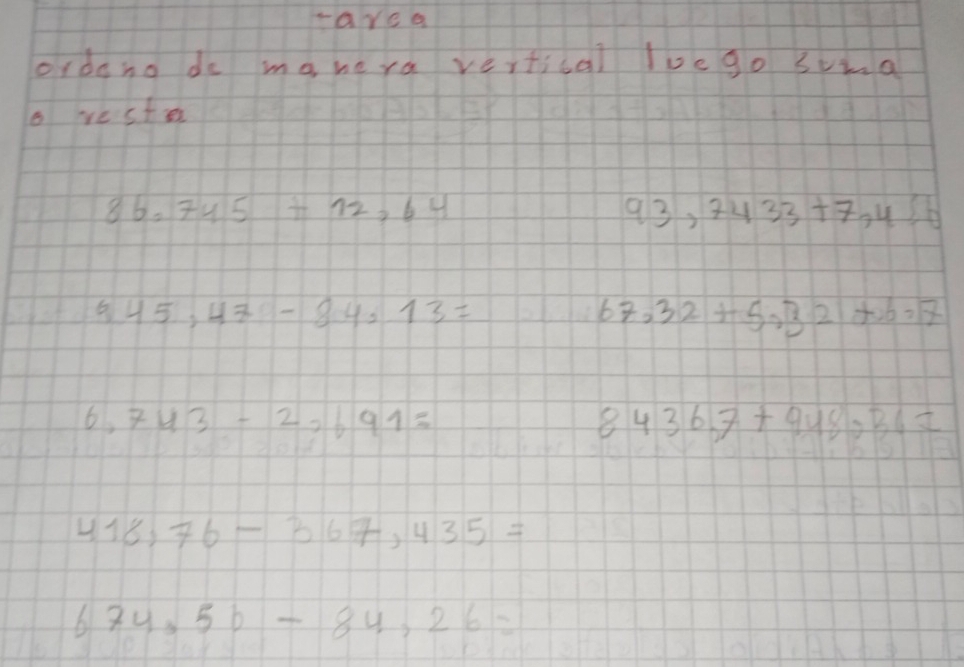 tarea
ordeno de manera vertical luego suma
o resta
86,745 + 12,64 93,7433+7,4
945,47 - 84,13= 67,32+5,32+6,7
6,743 - 2,691= 8436,7+948,36=
418,76 - 367,435 =
674,56 - 84,26=